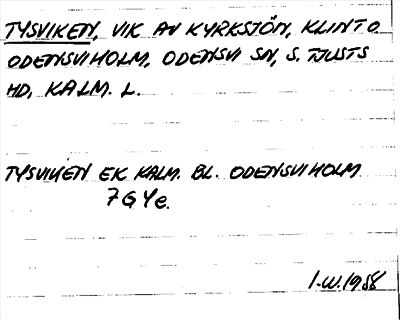 TYSVIKEN, VIK AV KYRKSJÖN, KLINTO
ODENSVIHOLM, ODENSVI SN, S. TJUSTS
HD, KALM. L.
TYSVIKEN EK KALM. BL. ODENSVIHOLM
7G4e.
I.W. 1988